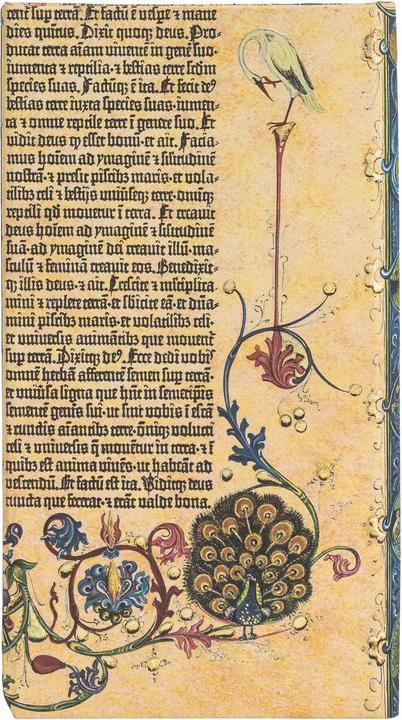 rent sup terrā. Et factū ē vespe ⁊ mane
dies quītus. Dixit quoqȝ deus. Pro-
ducat terra aīam vivente in gene suo:
iumenta ⁊ reptilia: ⁊ bestias terre scdm
species suas. Factūqȝ ē ita. Et fecit deꝰ
bestias terre iuxta species suas: iumen-
ta ⁊ omne reptile terre ī genere suo. Et
vidit deus ꝙ esset bonū: et ait. Facia-
mus hoīem ad ymaginē ⁊ silitudinē
nostrā: ⁊ presit piscibȝ maris: et vola-
tilibȝ celi ⁊ bestijs universeqȝ terre: omniqȝ
reptili qd̄ movetur ī terra. Et creavit
deus hoīem ad ymaginē ⁊ silitudinē
suā: ad ymaginē dei creavit illū: ma-
sculū ⁊ feminā creavit eos. Benedixit-
qȝ illis deus: ⁊ ait. Crescite ⁊ multiplica-
mini ⁊ replete terrā: et sbicite eā: et dn̄a-
mini piscibȝ maris: et volatilibȝ celi:
et universis animātibȝ que movent
sup terrā. Dixitqȝ deꝰ. Ecce dedi vobis
omnē herbā afferentē semen sup terrā:
et univsa ligna que hn̄t in semetipis
sementē genis sui: ut sint vobis ī escā
⁊ cunctis aīantibȝ terre: omniqȝ volucri
celi ⁊ universis q̄ moventur in terra: ⁊ ī
quibȝ est anima vivēs: ut habeāt ad
vescendū. Et factū est ita. Viditqȝ deus
cuncta que fecerat: ⁊ erāt valde bona.